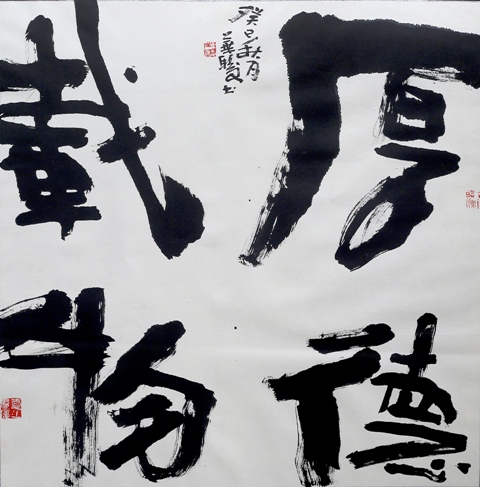 厚德
載物
癸巳秋月